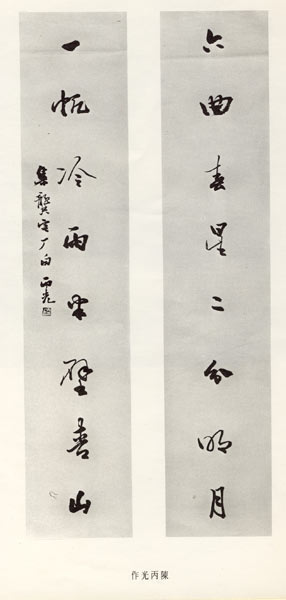 六曲春星二分明月
一帆冷雨半壁青山
集龔定厂句 丙光
陳丙光作